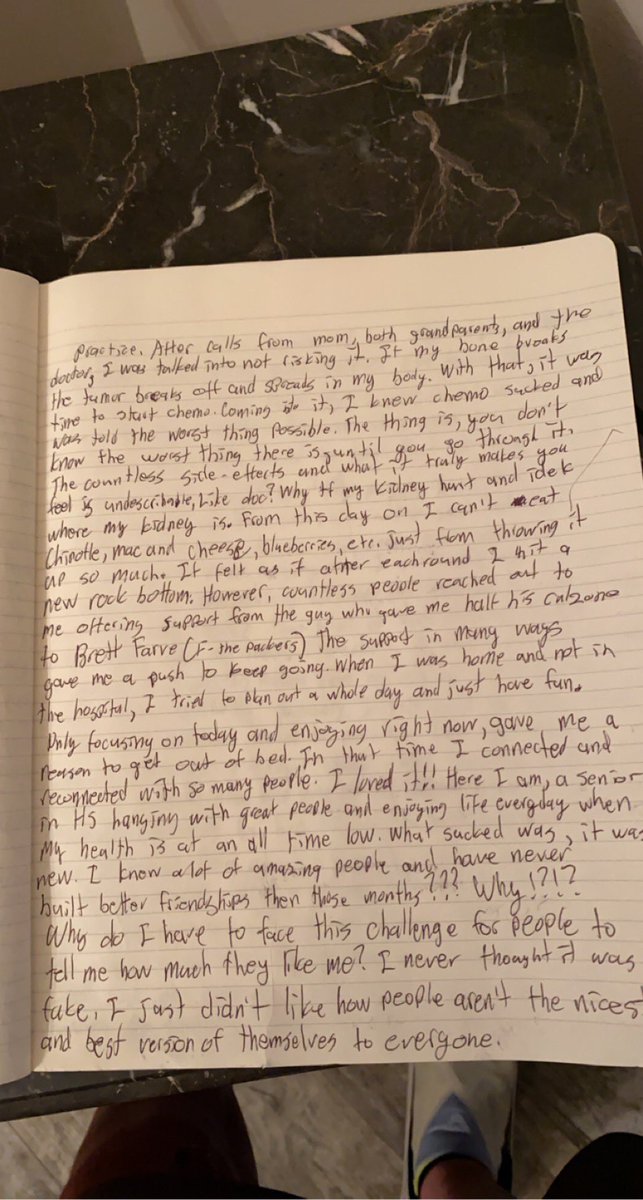 practice. After calls from mom, both grandparents, and the
doctor, I was talked into not risking it. If my bone breaks
the tumor breaks off and spreads in my body. With that, it was
time to start chemo. Coming into it, I knew chemo sucked and
was told the worst thing possible. The thing is, you don't
know the worst thing there is until you go through it.
The countless side-effects and what it truly makes you
feel is undescribable, Like doc? Why tf my kidney hurt and idek
where my kidney is. From this day on I can't eat
Chipotle, mac and cheese, blueberries, etc. just from throwing it
up so much. It felt as if after each round I hit a
new rock bottom. However, countless people reached out to
me offering support from the guy who gave me half his calzone
to Brett Farve (F- the packers) The support in many ways
gave me a push to keep going. When I was home and not in
the hospital, I tried to plan out a whole day and just have fun.
Only focusing on today and enjoying right now, gave me a
reason to get out of bed. In that time I connected and
reconnected with so many people. I loved it!! Here I am, a senior
in HS hanging with great people and enjoying life everyday when
my health is at an all time low. What sucked was, it was
new. I know a lot of amazing people and have never
built better friendships then those months??? Why!?!?
Why do I have to face this challenge for people to
tell me how much they like me? I never thought it was
fake, I just didn't like how people aren't the nices
and best version of themselves to everyone.